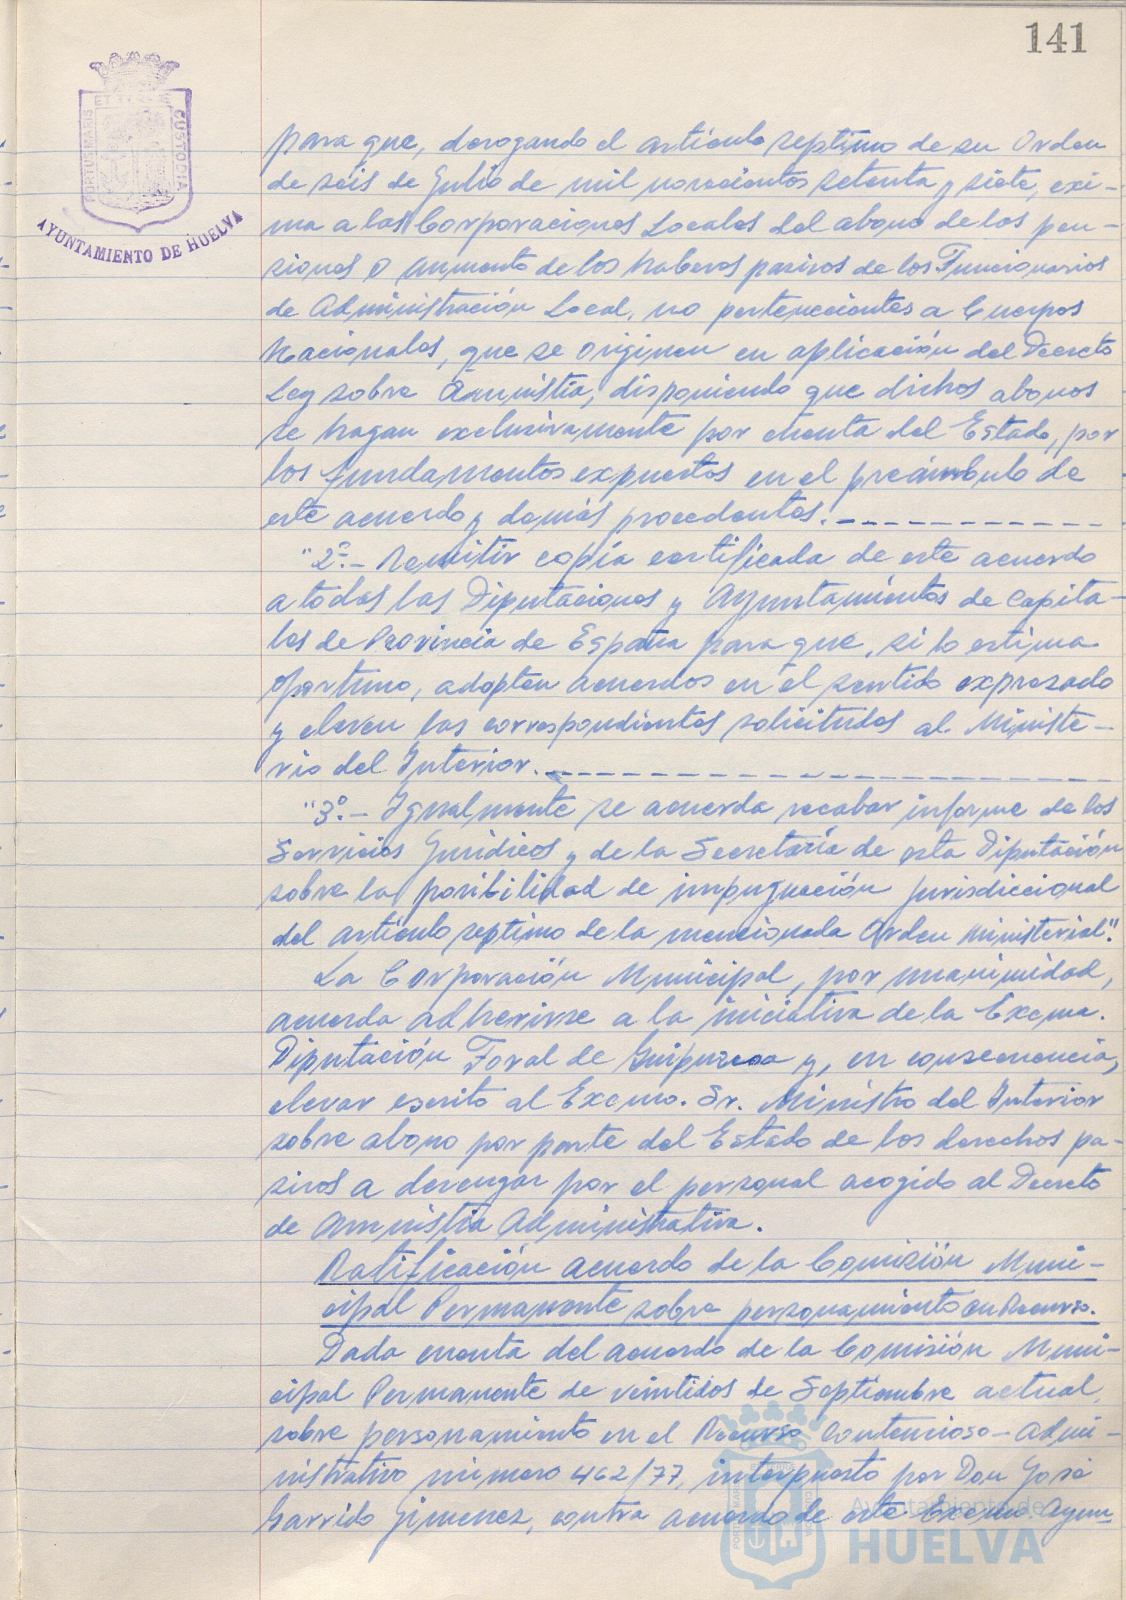 141
PORTUS MARIS ET TERRAE CUSTODIA
AYUNTAMIENTO DE HUELVA
para que, derogando el artículo septimo de su Orden
de seis de Julio de mil novecientos setenta y siete, exi-
ma a las Corporaciones Locales del abono de las pen-
siones o aumento de los haberes pasivos de los Funcionarios
de Administración Local, no pertenecientes a Cuerpos
Nacionales, que se originen en aplicación del Decreto
Ley sobre Amnistía, disponiendo que dichos abonos
se hagan exclusivamente por cuenta del Estado, por
los fundamentos expuestos en el preámbulo de
este acuerdo y demás procedentes.-------------
"2º.- Remitir copia certificada de este acuerdo
a todas las Diputaciones y Ayuntamientos de Capita-
les de Provincia de España para que, si lo estima
oportuno, adopten acuerdos en el sentido expresado
y eleven las correspondientes solicitudes al Ministe-
rio del Interior.-------------
"3º.- Igualmente se acuerda recabar informe de los
Servicios Jurídicos y de la Secretaría de esta Diputación
sobre la posibilidad de impugnación jurisdiccional
del artículo septimo de la mencionada Orden ministerial".
La Corporación Municipal, por unanimidad,
acuerda adherirse a la iniciativa de la Excma.
Diputación Foral de Guipuzcoa y, en consecuencia,
elevar escrito al Excmo. Sr. Ministro del Interior
sobre abono por parte del Estado de los derechos pa-
sivos a devengar por el personal acogido al Decreto
de Amnistía Administrativa.
Ratificación acuerdo de la Comisión Muni-
cipal Permanente sobre personamiento en Recurso.
Dada cuenta del acuerdo de la Comisión Muni-
cipal Permanente de veintidos de Septiembre actual,
sobre personamiento en el Recurso Contencioso-Admi-
nistrativo número 462/77, interpuesto por Don José
Garrido Jimenez, contra acuerdo de este Excmo. Ayun
Ayuntamiento de
HUELVA